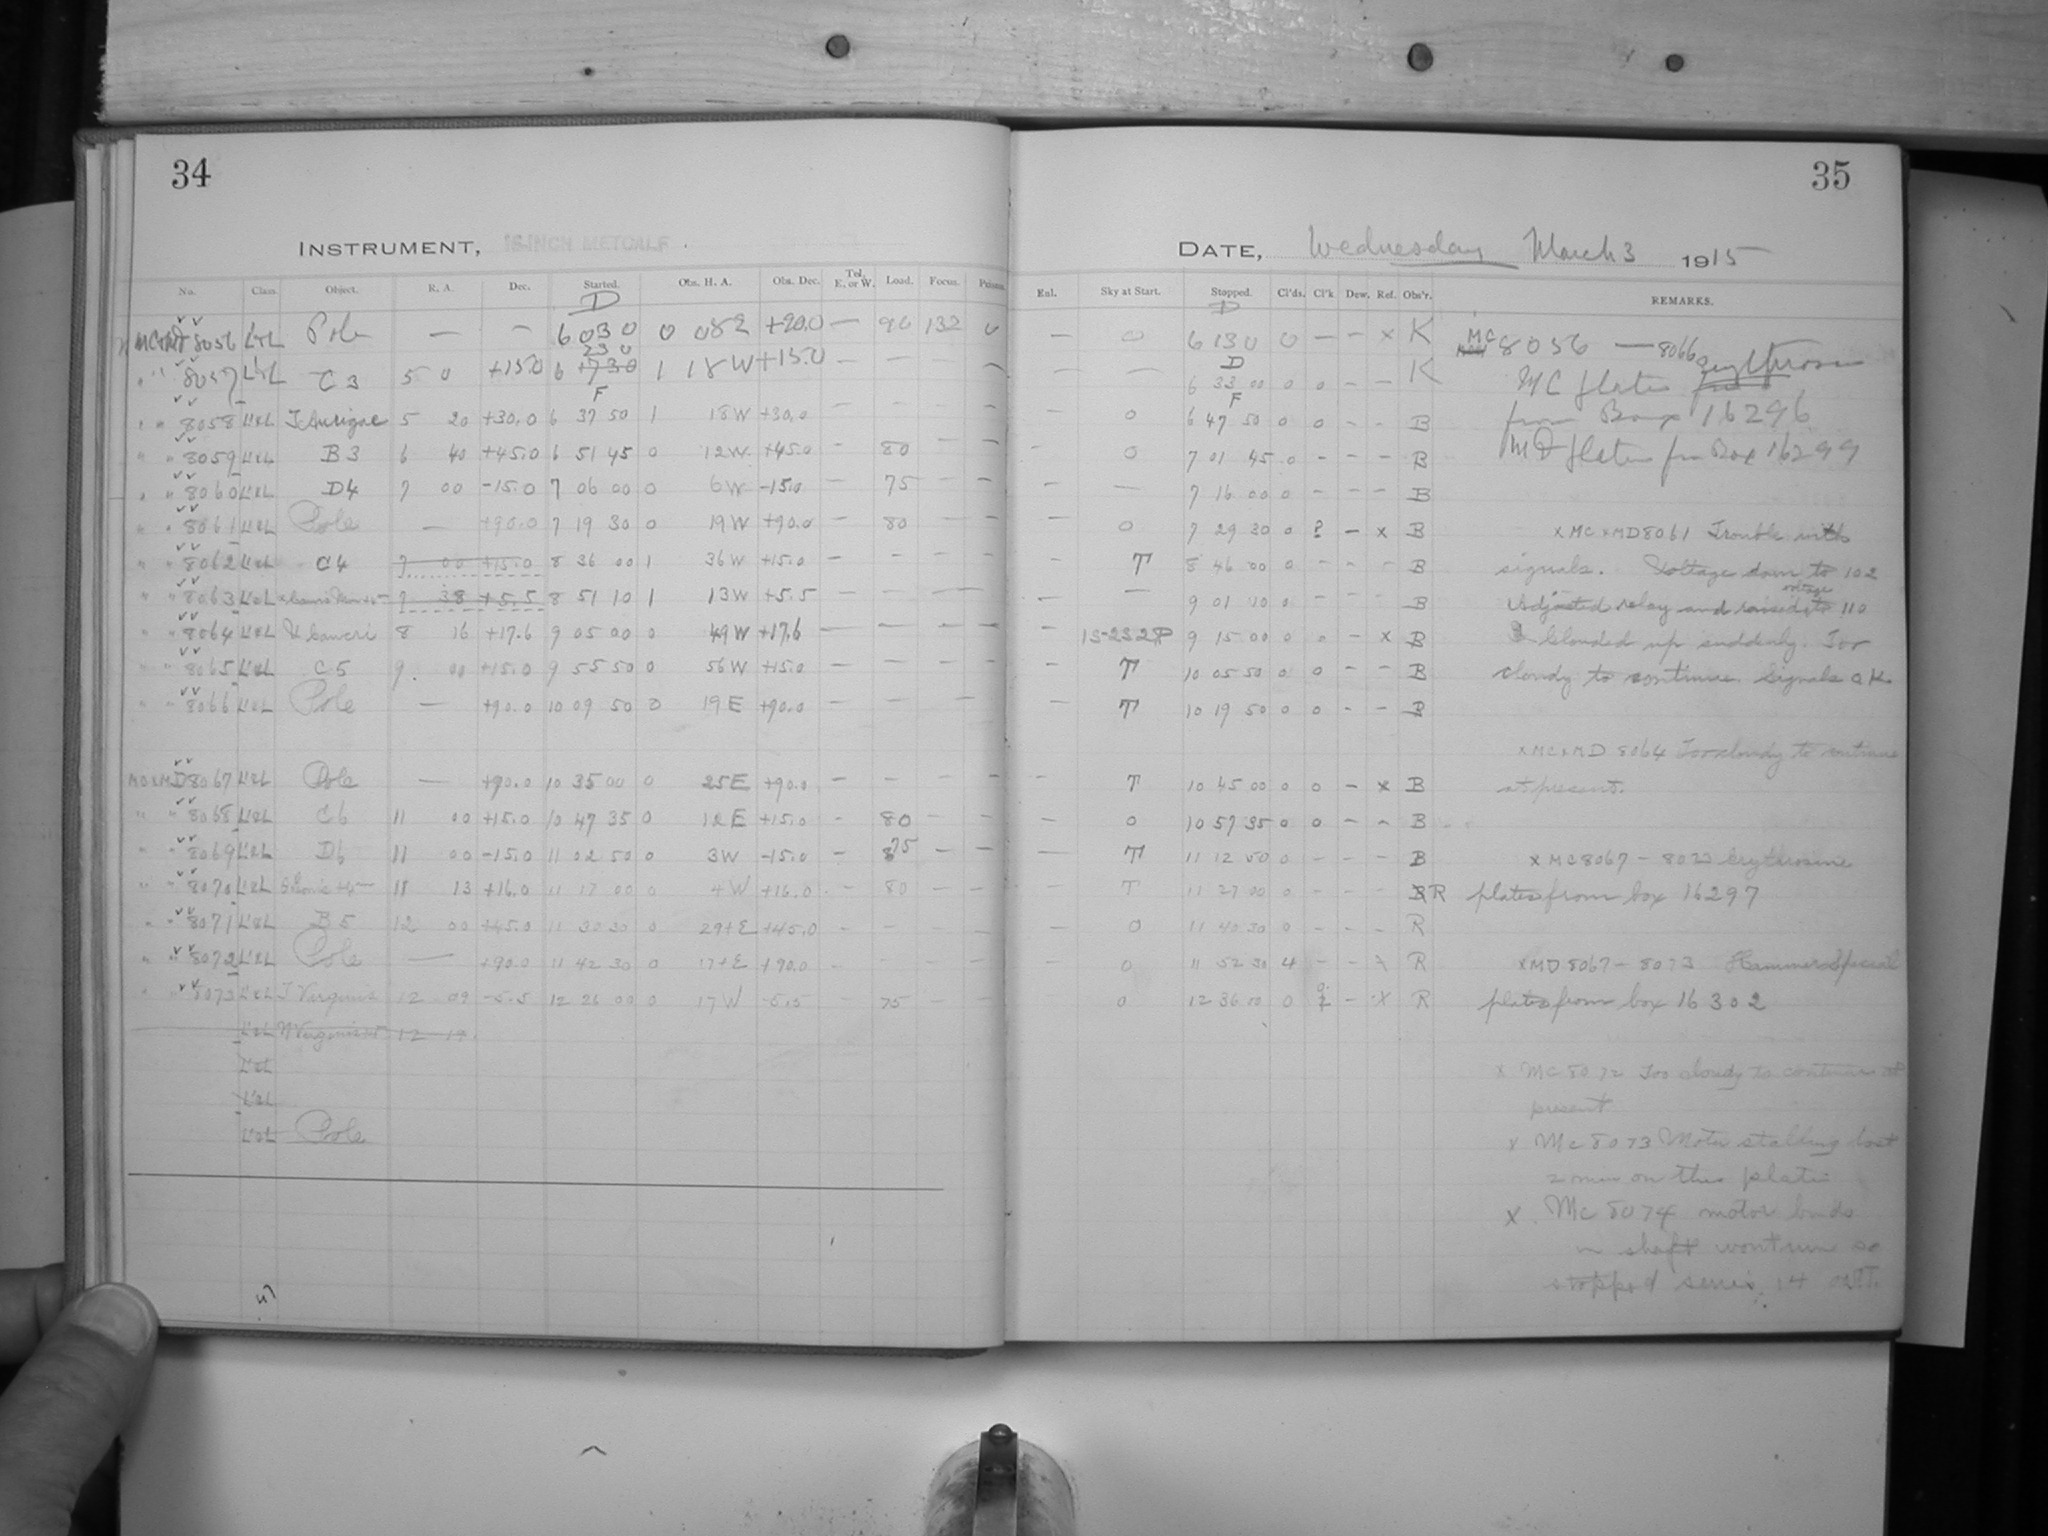 34
INSTRUMENT, 16-INCH METCALF.
No. Class. Object. R. A. Dec. Started. Obs. H. A. Obs. Dec. Tel. E. or W. Load. Focus.
D
8056 Pole — — 6 03 0 0 08 E — 132
23 0
8057 C3 5 0 +15.0 6 1 18 W +15.0 — — — —
F
8058 L&L T. Aurigae 5 20 +30.0 6 37 50 1 18 W +30.0 — — — —
8059 L&L B3 6 40 +45.0 6 51 45 0 12 W +45.0 — 80 — —
8060 L&L D4 7 00 -15.0 7 06 00 0 6 W -15.0 — 75 — —
8061 L&L Pole — +90.0 7 19 30 0 19 W +90.0 — 80 — —
8062 L&L C4 7 00 +15.0 8 36 00 1 36 W +15.0 — — — —
8063 L&L 7 38 +5.5 8 51 10 1 13 W +5.5 — — — —
8064 L&L Cancri 8 16 +17.6 9 05 00 0 49 W +17.6 — — — —
8065 L&L C5 9 00 +15.0 9 55 50 0 56 W +15.0 — — — —
8066 L&L Pole — +90.0 10 09 50 0 19 E +90.0 — — — —
8067 L&L Pole — +90.0 10 35 00 0 25 E +90.0 — — — —
8068 L&L C6 11 00 +15.0 10 47 35 0 12 E +15.0 — 80 — —
8069 L&L D6 11 00 -15.0 11 02 50 0 3 W -15.0 — 75 — —
8070 L&L 11 13 +16.0 11 17 00 0 4 W +16.0 — 80 — —
8071 L&L B5 12 00 +45.0 11 30 30 0 29+E +45.0 — — — —
8072 L&L Pole — +90.0 11 42 30 0 17+E +90.0 — — — —
8073 L&L T Virginis 12 09 -5.5 12 26 00 0 17 W -5.5 — 75 — —
L&L Virginis 12 14
L&L
L&L
L&L Pole
35
DATE, Wednesday March 3 1915
Enl. Sky at Start. Stopped. Cl'ds. Cl'k Dew. Ref. Obs'r. REMARKS.
D
— 0 6 13 0 0 — — x K
D
— — 6 33 00 0 0 — — K
F
— 0 6 47 50 0 0 — — B
— 0 7 01 45 0 — — — B
— — 7 16 00 0 — — — B
— 0 7 29 30 0 ? — x B
— T 8 46 00 0 — — — B
— — 9 01 10 0 — — — B
— 9 15 00 0 0 — x B
— T 10 05 50 0 0 — — B
— T 10 19 50 0 0 — — B
— T 10 45 00 0 0 — x B
— 0 10 57 35 0 0 — — B
— T 11 12 50 0 — — — B
— T 11 27 00 0 — — — R
— 0 11 40 30 0 — — — R
— 0 11 52 30 4 — — x R
0 12 36 00 0 — x R
MC 8056 — 8066 Erythrosin
MC plates
from Box 16296
MD plates from Box 16299
x MC x MD 8061 Trouble with
signals. Voltage down to 102
Adjusted relay and raised voltage to 110
Clouded up suddenly. Too
cloudy to continue. Signals O.K.
x MC x MD 8064 Too cloudy to continue
at present.
x MC 8067 - Erythrosine
plates from box 16297
x MD 8067 - 8073 Hammer Special
plates from box 16302
x MC 8072 Too cloudy to continue at
present
x MC 8073 Motor stalling lost
2 min on this plate
x. MC 8074 motor binds
in shaft wont run so
stopped series